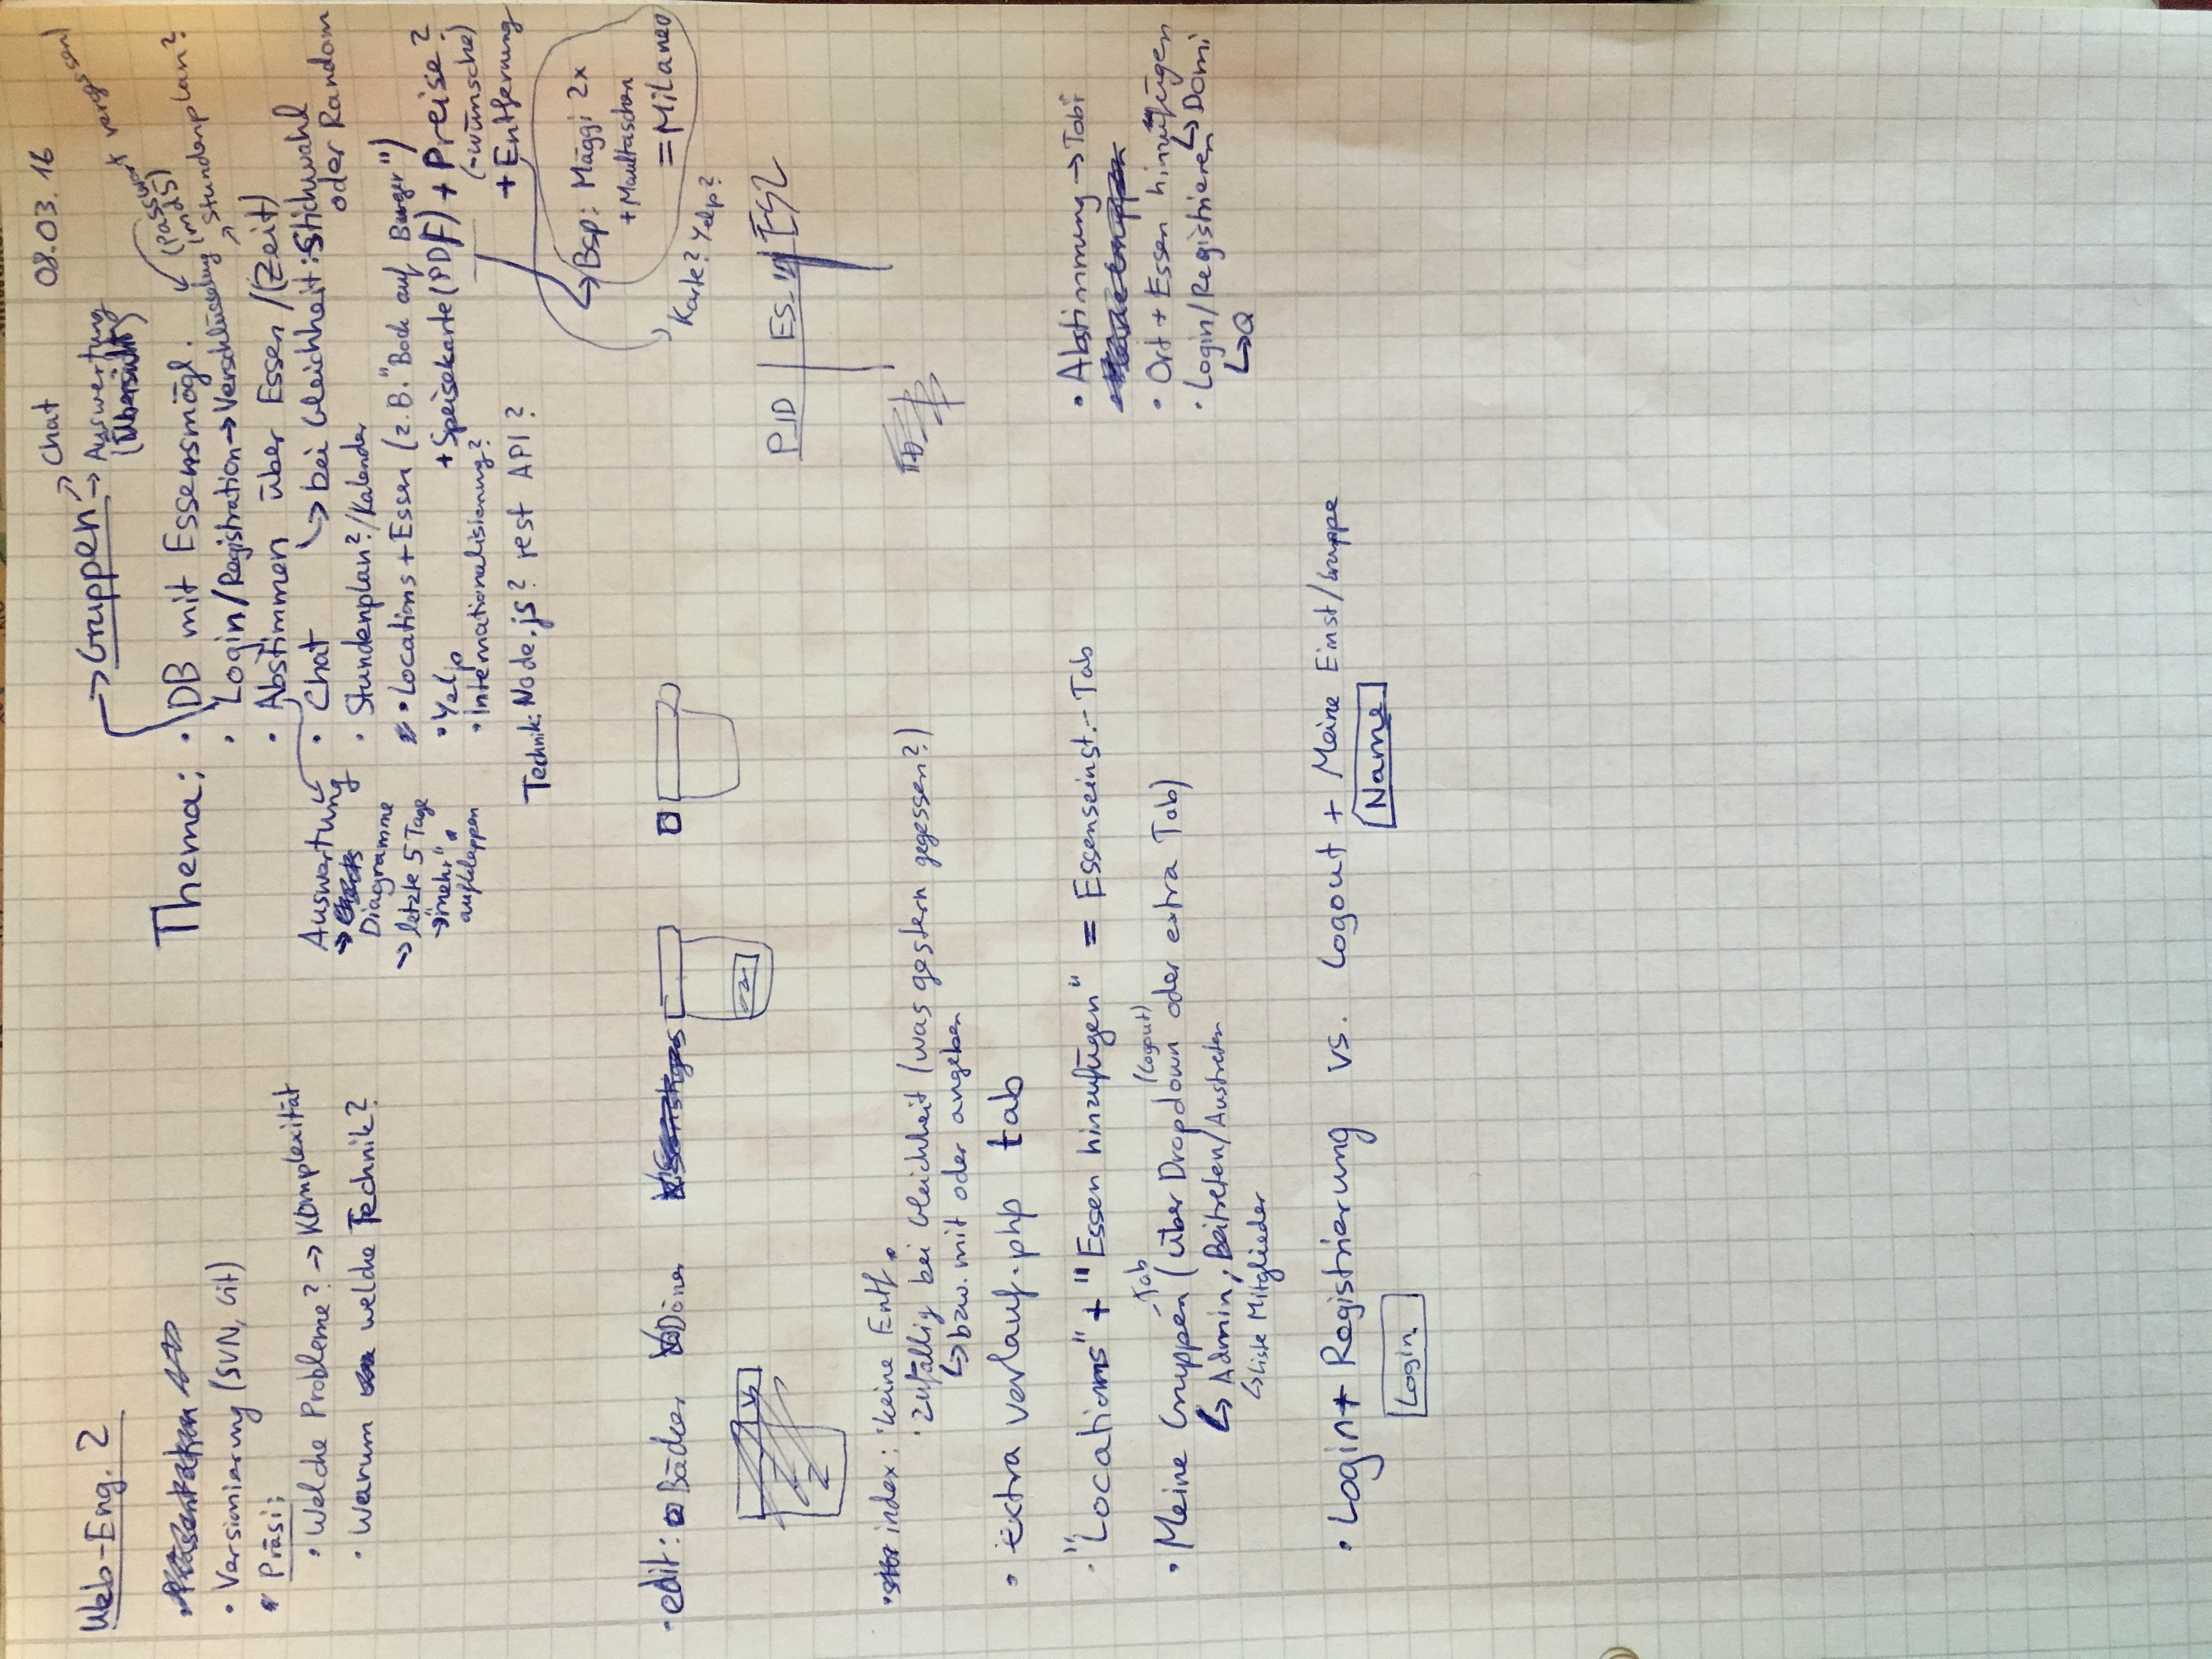 08.03.16
Web-Eng. 2
• Versionierung (SVN, Git)
• Präsi:
• Welche Probleme? → Komplexität
• Warum welche Technik?
→ Gruppen → Chat
→ Auswertung
(Übersicht)
Thema: • DB mit Essensmögl.
• Login/Registration → Verschlüsselung (md5)
(Passwort vergessen)
• Abstimmen über Essen /(Zeit)
↗ Stundenplan?
↳ bei Gleichheit: Stichwahl
oder Random
• Chat
• Stundenplan?/Kalender
• Locations + Essen (z.B. "Bock auf Burger")
+ Speisekarte (PDF) + Preise?
(-wünsche)
+ Entfernung
• Yelp
• Internationalisierung?
Technik: Node.js? rest API?
Auswertung
→
Diagramme
→ letzte 5 Tage
→ "mehr"
aufklappen
↳ Bsp: Mäggi 2x
+ Maultaschen
= Milaneo
Karte? Yelp?
• edit: □ Bäcker ☑ Döner
PID | ES_ID | ES2
• index: • keine Entf.
• zufällig bei Gleichheit (was gestern gegessen?)
↳ bzw. mit oder angeben
• extra verlauf.php tab
• "Locations" + "Essen hinzufügen" = Essenseinst.-Tab
• Meine Gruppen -Tab (über Dropdown (Logout) oder extra Tab)
↳ Admin, Beitreten/Austreten
↳ Liste Mitglieder
• Login + Registrierung vs. Logout + Meine Einst/Gruppe
Login
Name
• Abstimmung → Tobi
• Ort + Essen hinzufügen
↳ Domi
• Login/Registrieren
↳ Q